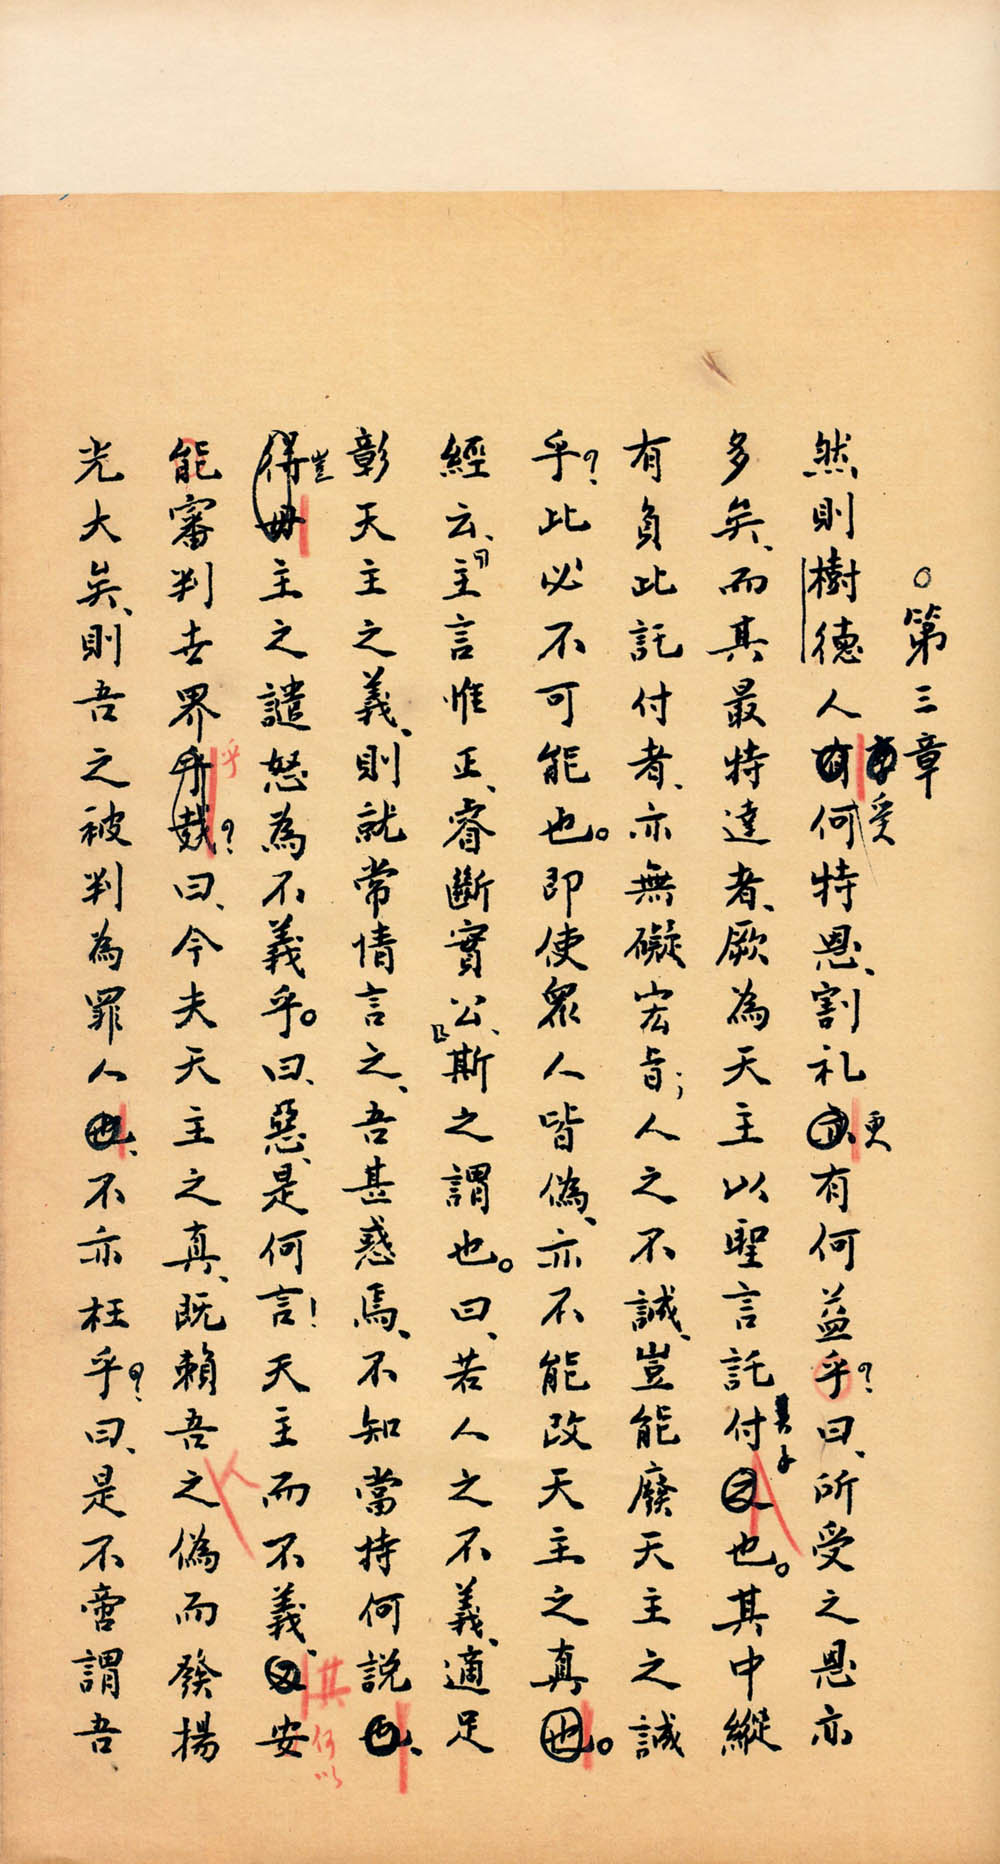 ○第三章
然則樹德人有何受特恩、割礼亦、更有何益乎?曰、所受之恩亦
多矣、而其最特達者、厥為天主以聖言託付之也。其中縱
有負此託付者、亦無礙宏旨;人之不誠、豈能廢天主之誠
乎?此必不可能也。即使眾人皆偽、亦不能改天主之真也。
經云、「主言惟正、睿斷實公、」斯之謂也。曰、若人之不義、適足
彰天主之義、則就常情言之、吾甚惑焉、不知當持何說也、
得毋豈主之譴怒為不義乎。曰、惡、是何言!天主而不義、又其安何以
能審判世界乎哉乎?曰、今夫天主之真、既賴吾之偽而發揚
光大矣、則吾之被判為罪人也、不亦枉乎?曰、是不啻謂吾